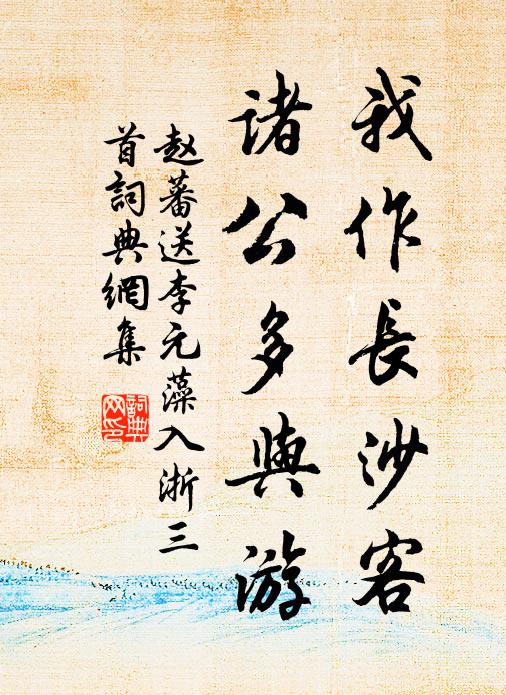 我作長沙客
諸公多與游
赵蕃送李元藻入浙三
首詞典網集
詞典
网印